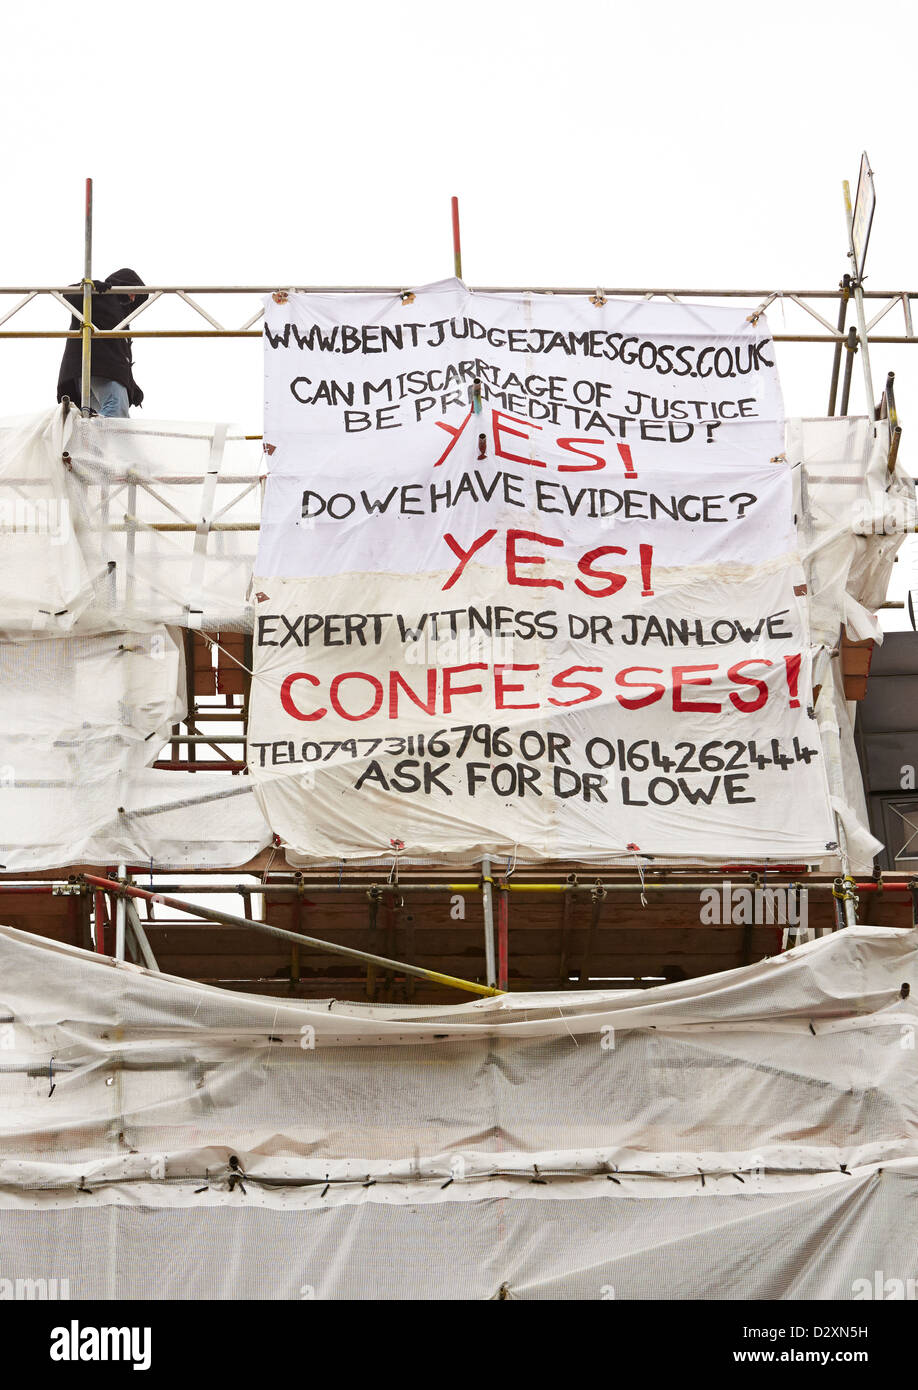 WWW.BENTJUDGEJAMESGOSS.CO.UK
CAN MISCARRIAGE OF JUSTICE
BE PREMEDITATED?
YES!
DO WE HAVE EVIDENCE?
YES!
EXPERT WITNESS DR JAN-LOWE
CONFESSES!
TEL07973116796 OR 0164262444
ASK FOR DR LOWE
alamy
alamy
alamy
alamy
www.alamy.com - D2XN5H